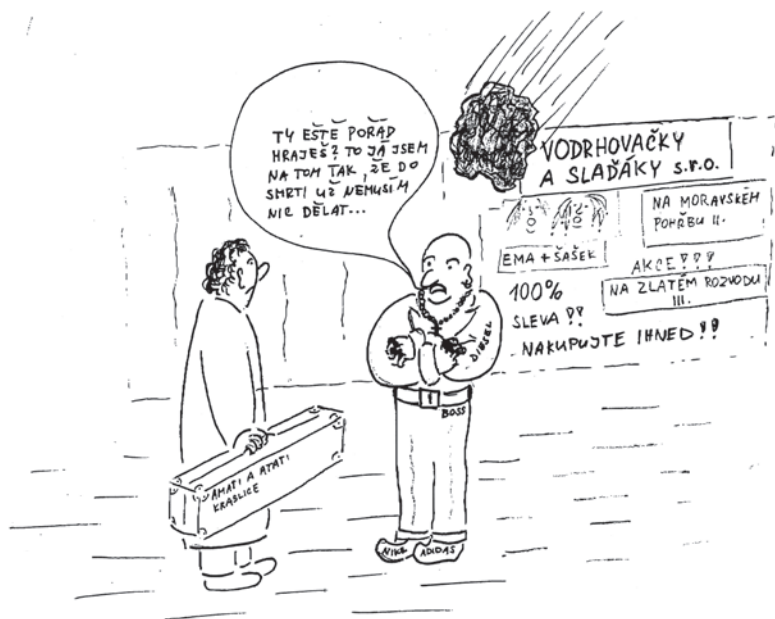 TY EŠTE POŘÁD
HRAJEŠ? TO JÁ JSEM
NA TOM TAK, ŽE DO
SMRTI UŽ NEMUSIM
NIC DĚLAT...
VODRHOVAČKY
A SLAĎÁKY s.r.o.
EMA + ŠAŠEK
NA MORAVSKÉM
POHŘBU II.
AKCE!!!
NA ZLATÉM ROZVODU
III.
100%
SLEVA!!
NAKUPUJTE IHNED!!
DIESEL
BOSS
AMATI A ATATI
KRASLICE
NIKE
ADIDAS